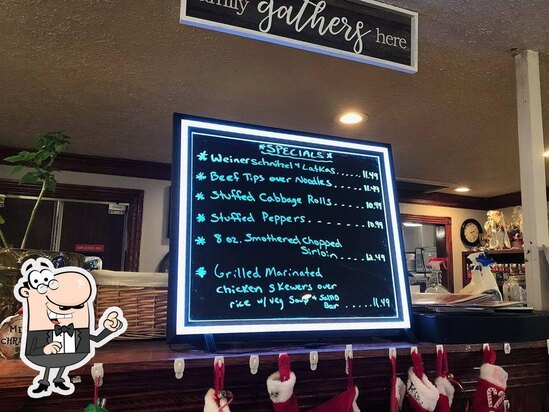 family
gathers
here
*SPECIALS*
* Weinerschnitzel & Latkas.....11.49
* Beef Tips over Noodles.....11.49
* Stuffed Cabbage Rolls.....10.99
* Stuffed Peppers.....10.99
* 8 oz. Smothered Chopped
Sirloin.....12.49
* Grilled Marinated
chicken skewers over
rice w/ veg Soup & Salad
Bar.....11.49
EMPLOYEES ONLY